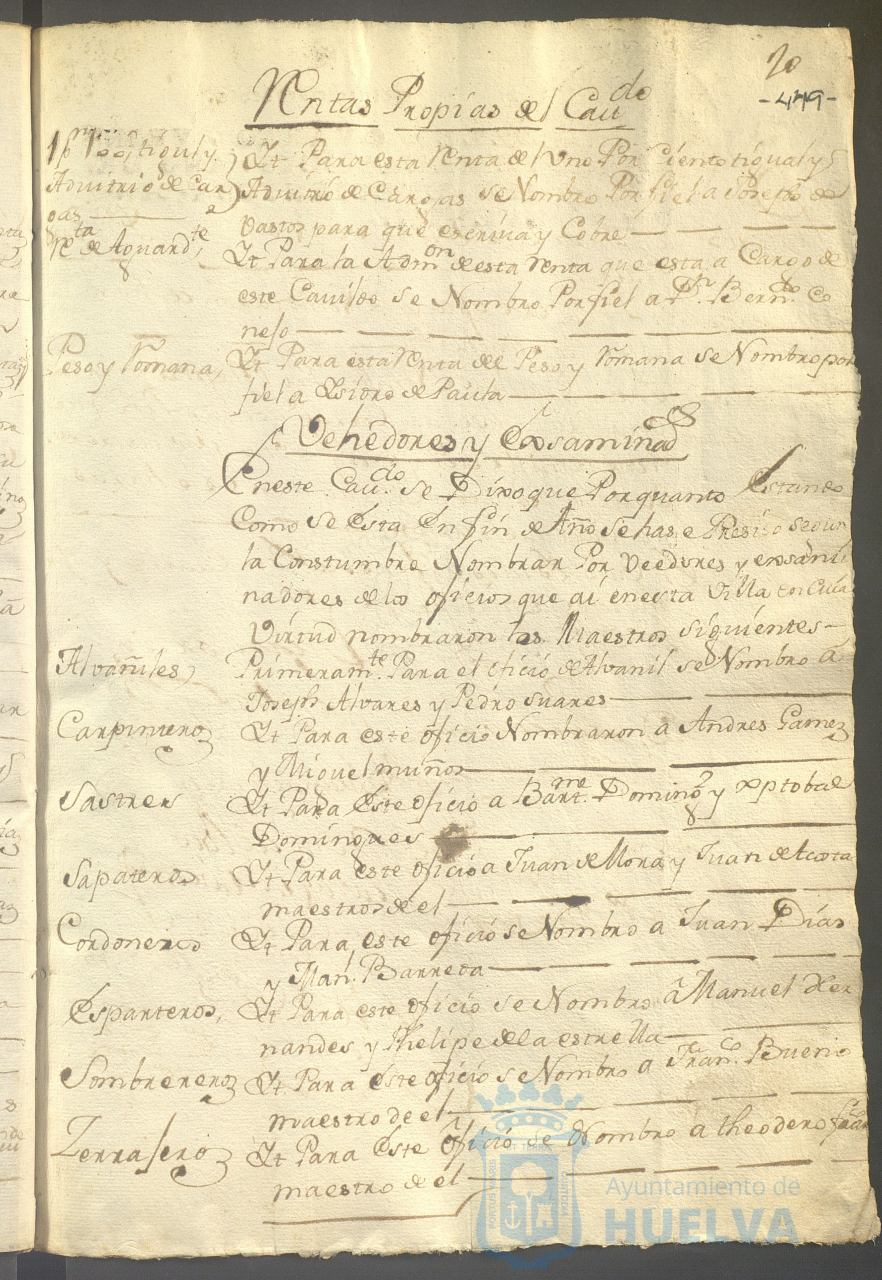 20
-449-
Rentas Propias del Cavdo
1 pr 100, tigual y
Advitrio de Car
gas
It Para esta Renta del Uno Por Ciento tigual y
Advitrio de Cargas se Nombro Por fiel a Joseph de
Vastos para que escriva y Cobre
Rta de Aguardte,
It Para la Admon de esta Renta que esta a Cargo de
este Cavildo se Nombro Por fiel a Dn Berndo Co
nejo
Peso y Romana,
It Para esta Renta del Peso y Romana se Nombro por
fiel a Isidro de Paula
Vehedores y Exsaminads
En este Cavdo se Dixo que Por quanto Estando
Como se Esta En fin de Año se hase Presiso segun
la Constumbre Nombrar Por Veedores y exsami
nadores de los oficios que ai en esta Villa en Cuia
Virtud nombraron los Maestros siguientes
Alvañiles,
Primeramte Para el oficio de Alvanil se Nombro a
Joseph Alvares y Pedro Suares
Carpinteros
It Para este oficio Nombraron a Andres Gamez
y Miguel muños
Sastres
It Para Este oficio a Bartme Domingz y xptobal
Domingues
Sapateros
It Para este oficio a Juan de Mora y Juan de Acosta
maestros de el
Cordoneros
It Para este oficio se Nombro a Juan Dias
y Manl Barreta
Esparteros,
It Para este oficio se Nombro a Manuel Xer
nandes y Phelipe de la estrella
Sombrereros
It Para este oficio se Nombro a Franco Bueno
maestro de el
Zerrajeros
It Para Este oficio se Nombro a theodoro
maestro de el
Ayuntamiento de
HUELVA